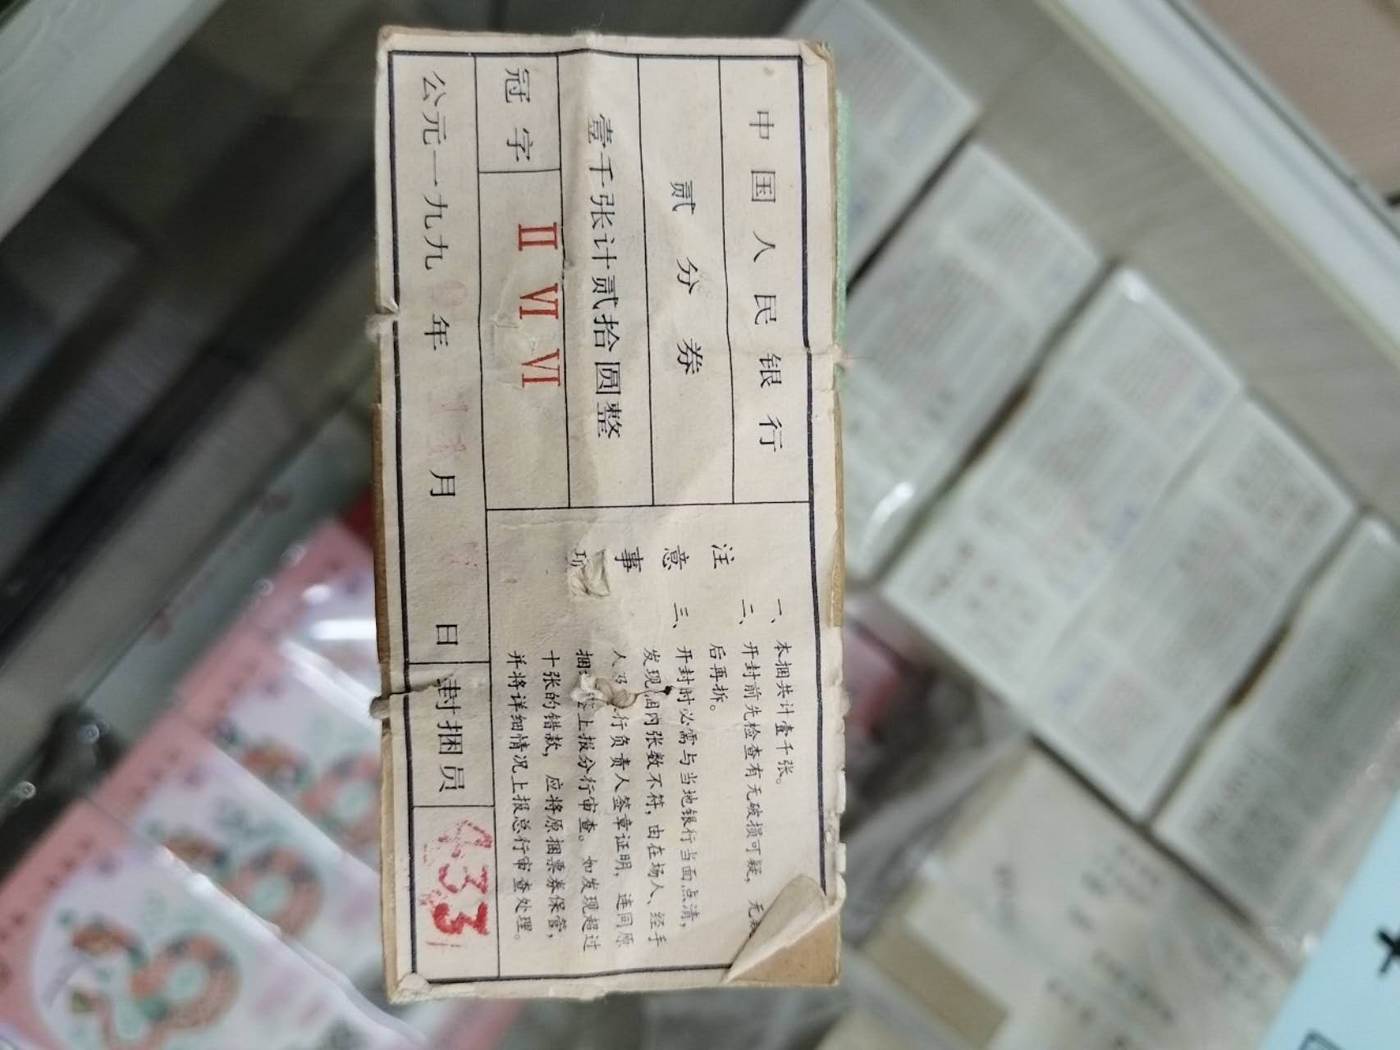 中国人民银行
贰分券
壹千张计贰拾圆整
冠字 Ⅱ Ⅵ Ⅵ
公元一九九 年 月 日 封捆员 433
注意事项
一、本捆共计壹千张。
二、开封前先检查有无破损可疑,无
后再拆。
三、开封时必需与当地银行当面点清,
发现捆内张数不符,由在场人、经手
人及 行负责人签章证明,连同原
捆 签上报分行审查。如发现超过
十张的错款,应将原捆票券保管,
并将详细情况上报总行审查处理。